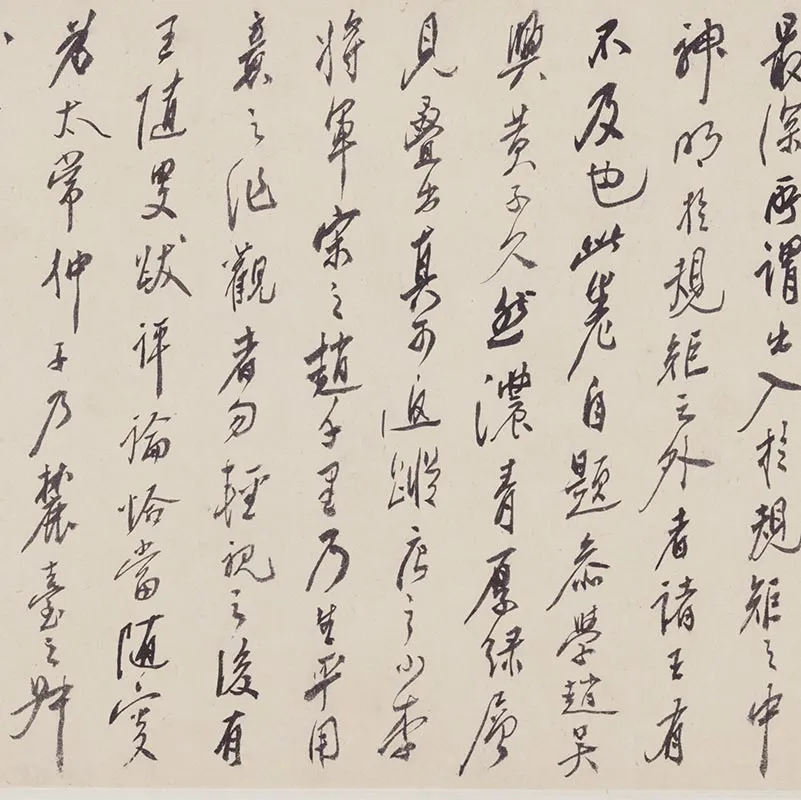 最深所謂出入於規矩之中
神明於規矩之外者諸王有
不及也此卷自題叅學趙吳
興黃子久然濃青厚綠層
見疊出真可追蹤唐之小李
將軍宋之趙千里乃生平用
意之作觀者勿輕視之後有
王隨叟跋評論恰當隨叟
為太常仲子乃麓臺之叔